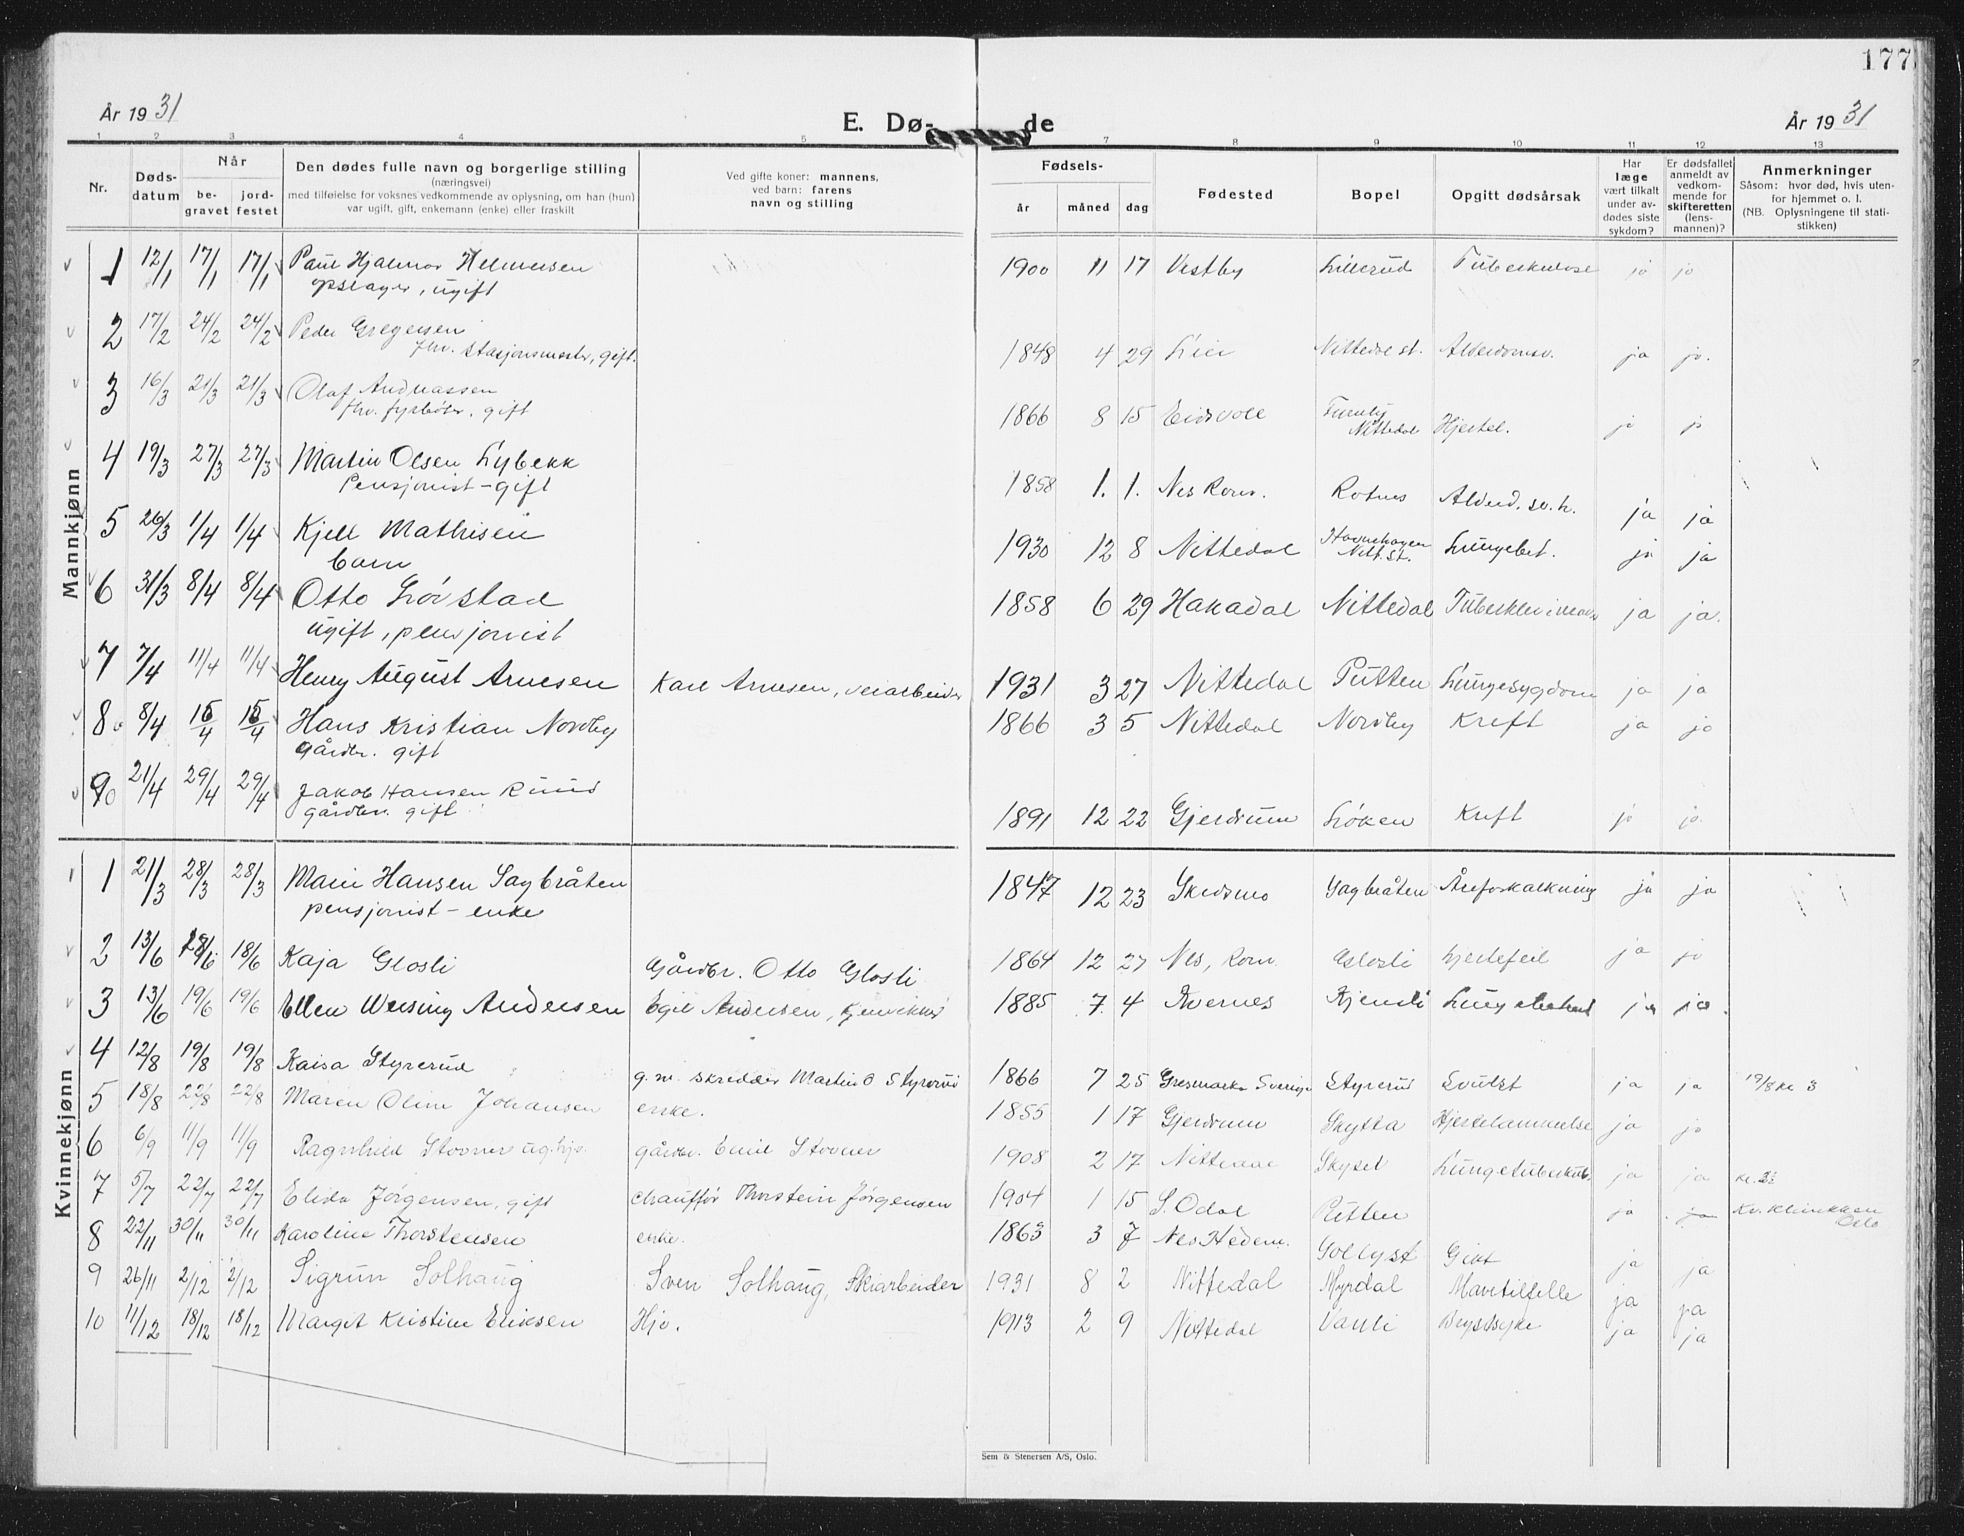 177
År 1931
E. Dø-
de
År 1931
1 2 3 4 5 7 8 9 10 11 12 13
Nr.
Døds-
datum
Når
be-
gravet
jord-
festet
Den dødes fulle navn og borgerlige stilling
(næringsvei)
med tilføielse for voksnes vedkommende av oplysning, om han (hun)
var ugift, gift, enkemann (enke) eller fraskilt
Ved gifte koner: mannens,
ved barn: farens
navn og stilling
Fødsels-
år måned dag
Fødested
Bopel
Opgitt dødsårsak
Har
læge
vært tilkalt
under av-
dødes siste
sykdom?
Er dødsfallet
anmeldt av
vedkom-
mende for
skifteretten
(lens-
mannen)?
Anmerkninger
Såsom: hvor død, hvis uten-
for hjemmet o. l.
(NB. Oplysningene til stati-
stikken)
Mannkjønn
1 12/1 17/1 17/1 Paul Hjalmar Helmersen 1900 11 17 Vestby Lillerud Tuberkulose jo jo
opslager, ugift
2 17/2 24/2 24/2 Peder Gregersen
fhv. stasjonsmester, gift. 1848 4 29 Lier Nittedal st. Alderdomsv. ja jo.
3 16/3 21/3 21/3 Olaf Andreassen
fhv. fyrbøter, gift 1866 8 15 Eidsvoll Nittedal Hjertel. jo jo
4 19/3 27/3 27/3 Martin Olsen Lybekk
Pensjonist - gift 1858 1. 1. Nes Rom. Rotnes Alderd. sv. h. ja ja
5 26/3 1/4 1/4 Kjell Mathisen 1930 12 8 Nittedal Havnehagen Nitt. St. Lungebet. ja ja
barn
6 31/3 8/4 8/4 Otto Lövstad 1858 6 29 Hakadal Nittedal ja ja.
ugift, pensjonist
7 7/4 11/4 11/4 Henry August Arnesen Karl Arnesen, veiarbeider 1931 3 27 Nittedal Putten Lungesygdom ja ja
8 8/4 15/4 15/4 Hans Kristian Nordby 1866 3 5 Nittedal Nordby Kreft ja jo
Gårdbr. gift
9 21/4 29/4 29/4 Jakob Hansen Ruud
gårdbr. gift 1891 12 22 Gjerdrum Löken Kreft jo jo.
Kvinnekjønn
1 21/3 28/3 28/3 Marie Hansen Sagbråten 1847 12 23 Skedsmo Sagbråten Åreforkalkning ja ja
pensjonist - enke
2 13/6 18/6 18/6 Kaja Glosli Gårdbr. Otto Glosli 1864 12 27 Nes, Rom. Glosli hjertefeil ja jo
3 13/6 19/6 19/6 Ellen Wersing Andersen Egil Andersen, 1885 7. 4 Kvernes Kjensli ja ja.
4 12/8 19/8 19/8 Kaisa Styrerud g. m. skredder Martin O Styrerud 1866 7 25 Gresmark, Sverige Styrerud Svulst ja ja 19/8 kl 3
5 18/8 22/8 22/8 Maren Oline Johansen enke. 1855 1 17 Gjerdrum Skytta Hjertelammelse ja jo
6 6/9 11/9 11/9 Ragnhild Stovner ug. hjv. gårdbr. Emil Stovner 1908 2 17 Nittedal Skyset Lungetuberkul. ja ja
7 5/7 22/7 22/7 Elida Jörgensen, gift chauffør Thorstein Jørgensen 1904 1 15 S. Odal Putten ja ja Kv. klinikken
Oslo
8 22/11 30/11 30/11 Karoline Thorstensen enke. 1863 3 7 Nes Hedem. Sollyst Gikt ja ja
9 26/11 2/12 2/12 Sigrun Solhaug Sven Solhaug, Skiarbeider 1931 8 2 Nittedal Myrdal Mavetilfelle ja ja
10 11/12 18/12 18/12 Margit Kristine Eriksen Hjv. 1913 2 9 Nittedal Vauli Brystsyke ja ja
Sem & Stenersen A/S, Oslo.